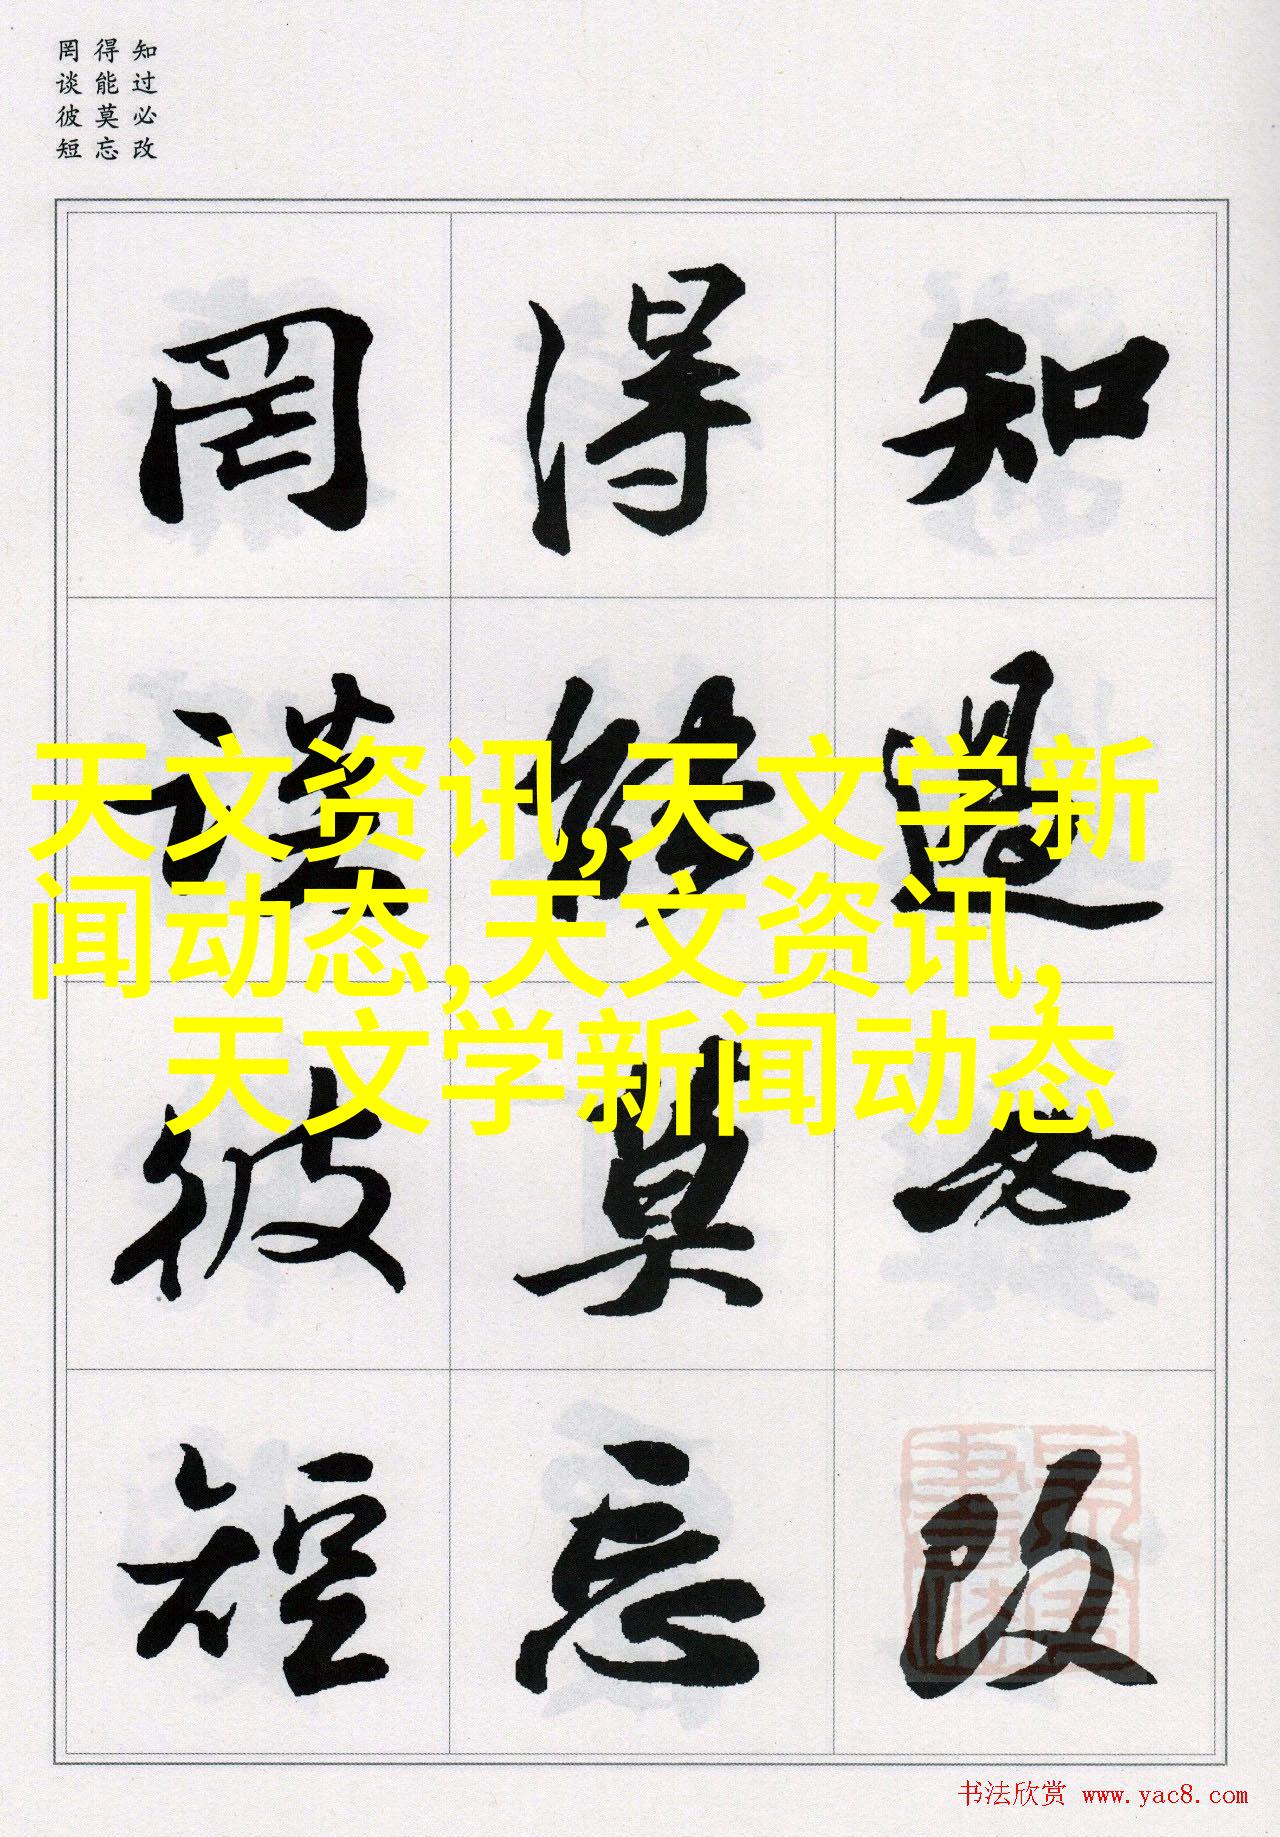 知过必改
得能莫忘
罔谈彼短
知過必改
得能莫忘
罔谈彼短
天文资讯,天文学新
闻动态,天文资讯,
天文学新闻动态
书法欣赏 www.yac8.com